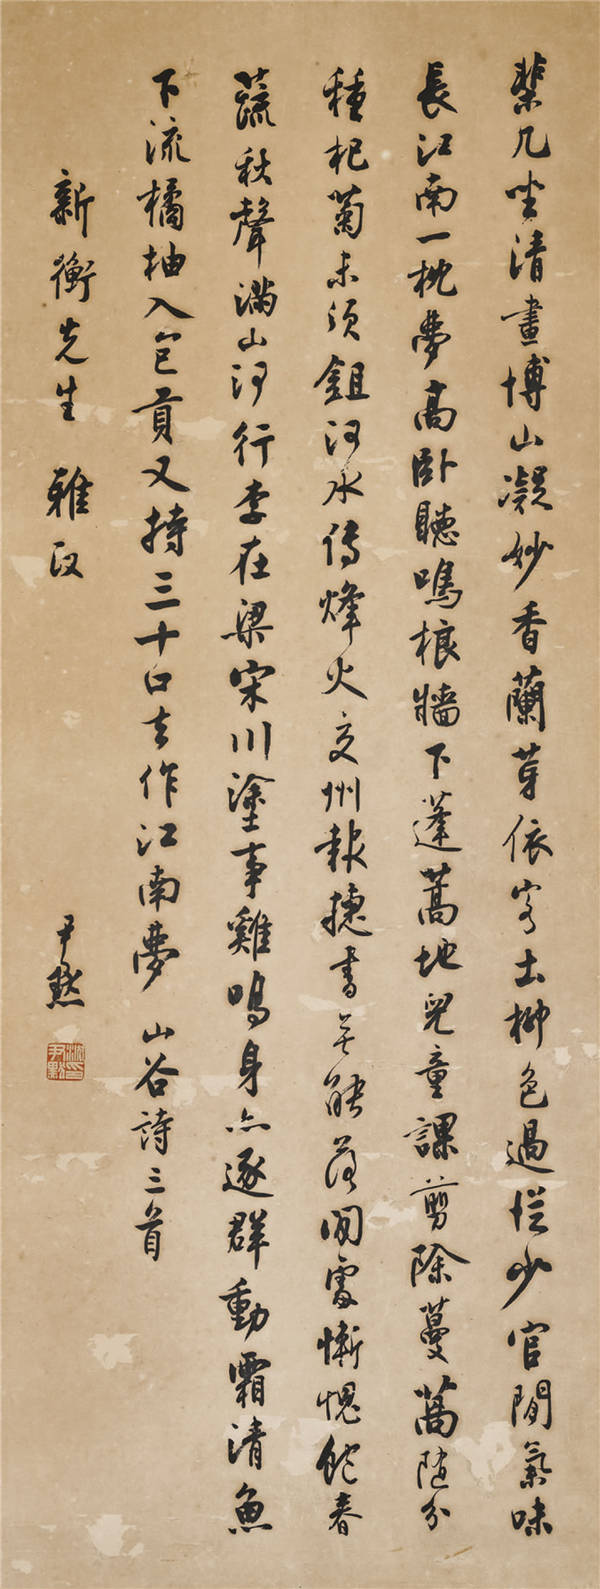 棐几坐清晝博山凝妙香蘭芽依客土柳色過從少官閒氣味
長江南一枕夢高臥聽鳴桹牆下蓬蒿地兒童課剪除蔓蒿隨分
種杞菊未須鉏河水傳烽火交州報捷書無能落閒處慚愧飽春
蔬秋聲滿山河行李在梁宋川塗事雞鳴身亦逐群動霜清魚
下流橘柚入包貢又持三十口去作江南夢 山谷詩三首
新衡先生 雅政
尹默
沈尹默印